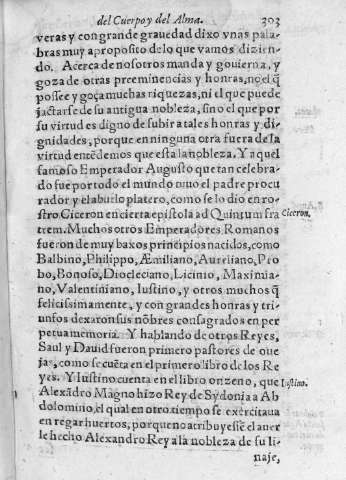 del Cuerpo y del Alma. 303
veras y con grande grauedad dixo vnas pala-
bras muy a proposito de lo que vamos dizien-
do. Acerca de nosotros manda y gouierna, y
goza de otras preeminencias y honras, no el q̃
possee y goça muchas riquezas, ni el que puede
jactarse de su antigua nobleza, sino el que por
su virtud es digno de subir a tales honras y di-
gnidades, porque en ninguna otra fuera de la
virtud entẽdemos que esta la nobleza. Y aquel
famoso Emperador Augusto que tan celebra-
do fue por todo el mundo tuuo el padre procu
rador y el abuelo platero, como se lo dio en ro-
stro. Ciceron en cierta epistola ad Quintum fra
Ciceron.
trem. Muchos otros Emperadores Romanos
fueron de muy baxos principios nacidos, como
Balbino, Philippo, Æmiliano, Aureliano, Pro
bo, Bonoso, Diocleciano, Licinio, Maximia-
no, Valentiniano, Iustino, y otros muchos q̃
felicissimamente, y con grandes honras y tri-
unfos dexaron sus nõbres consagrados en per
petua memoria. Y hablando de otros Reyes,
Saul y Dauid fueron primero pastores de oue
jas, como se cuẽta en el primero libro de los Re
yes. Y Iustino cuenta en el libro onzeno, que
Iustino.
Alexãdro Magno hizo Rey de Sydonia a Ab
dolomino, el qual en otro tiempo se exercitaua
en regar huertos, porque no atribuyesse el auer
le hecho Alexandro Rey a la nobleza de su li-
naje,